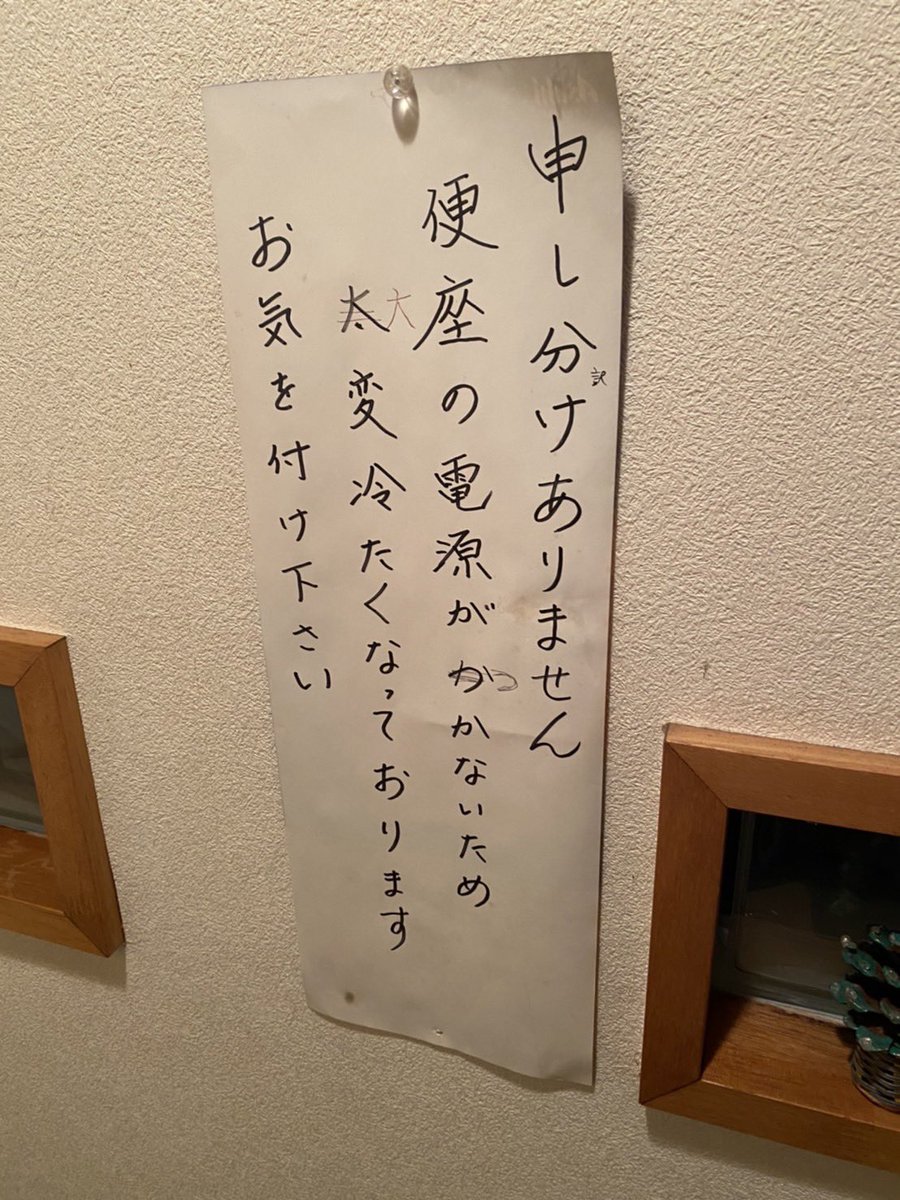 申し分けありません
訳
便座の電源がかかないため
つ
太変冷たくなっております
大
お気を付け下さい